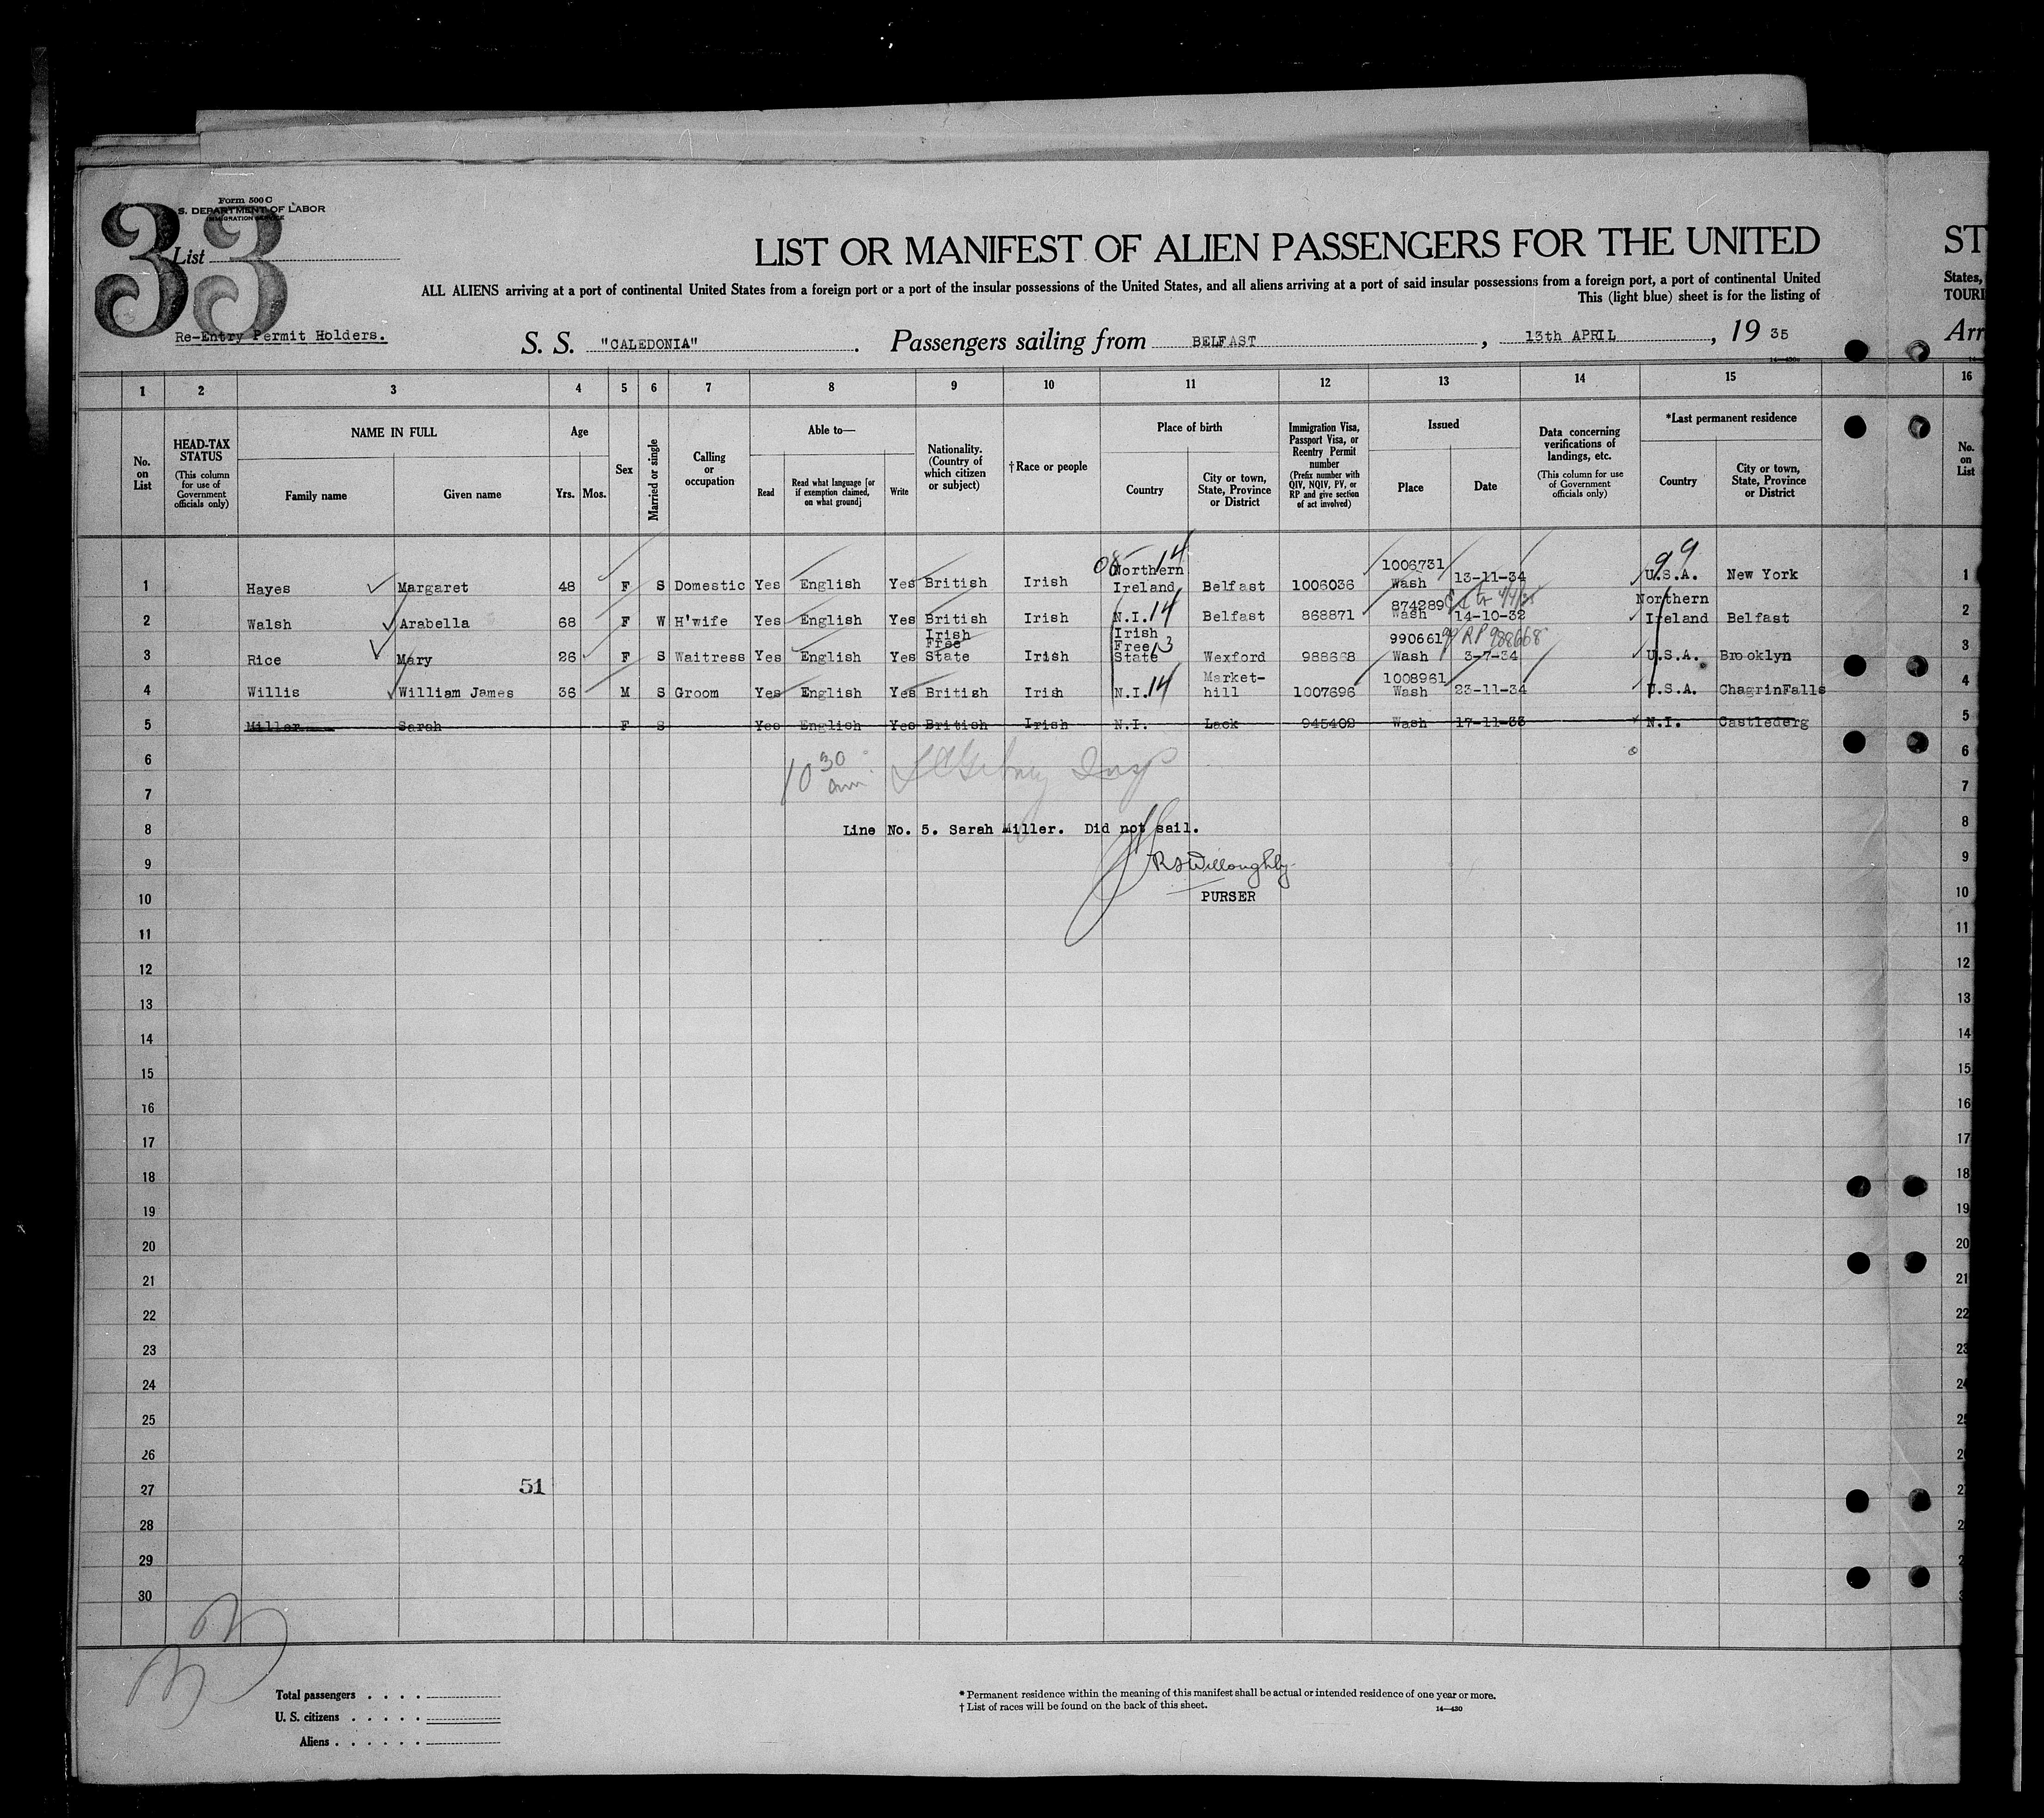 33
Form 500 C
S. DEPARTMENT OF LABOR
IMMIGRATION SERVICE
List
LIST OR MANIFEST OF ALIEN PASSENGERS FOR THE UNITED
ST
ALL ALIENS arriving at a port of continental United States from a foreign port or a port of the insular possessions of the United States, and all aliens arriving at a port of said insular possessions from a foreign port, a port of continental United
States,
This (light blue) sheet is for the listing of
TOURI
Re-Entry Permit Holders.
S. S. "CALEDONIA". Passengers sailing from BELFAST, 13th APRIL, 19 35
Arr
14—430
1 2 3 4 5 6 7 8 9 10 11 12 13 14 15 16
No. on List
HEAD-TAX STATUS (This column for use of Government officials only)
NAME IN FULL
Family name Given name
Age
Yrs. Mos.
Sex
Married or single
Calling or occupation
Able to—
Read Read what language [or if exemption claimed, on what ground] Write
Nationality. (Country of which citizen or subject)
†Race or people
Place of birth
Country City or town, State, Province or District
Immigration Visa, Passport Visa, or Reentry Permit number (Prefix number with QIV, NQIV, PV, or RP and give section of act involved)
Issued
Place Date
Data concerning verifications of landings, etc. (This column for use of Government officials only)
*Last permanent residence
Country City or town, State, Province or District
No. on List
1 Hayes Margaret 48 F S Domestic Yes English Yes British Irish Northern Ireland 14 Belfast 1006036 1006731 Wash 13-11-34 U.S.A. 99 New York 1
2 Walsh Arabella 68 F W H'wife Yes English Yes British Irish N.I. 14 Belfast 868871 874289 Wash 14-10-32 Northern Ireland Belfast 2
3 Rice Mary 26 F S Waitress Yes English Yes Irish Free State Irish Irish Free State 13 Wexford 988668 990661 Wash RP 988668 3-7-34 U.S.A. Brooklyn 3
4 Willis William James 36 M S Groom Yes English Yes British Irish N.I. 14 Market-hill 1007696 1008961 Wash 23-11-34 U.S.A. ChagrinFalls 4
5 Miller Sarah F S Yes English Yes British Irish N.I. Lack 945402 Wash 17-11-33 N.I. Castlederg 5
6 6
10 30 am Insp
7 7
8 Line No. 5. Sarah Miller. Did not sail. 8
9 RS Willoughby 9
10 PURSER 10
11 11
12 12
13 13
14 14
15 15
16 16
17 17
18 18
19 19
20 20
21 21
22 22
23 23
24 24
25 25
26 26
27 51
28
29
30
Total passengers . . . .
U. S. citizens . . . . .
Aliens . . . . . .
* Permanent residence within the meaning of this manifest shall be actual or intended residence of one year or more.
† List of races will be found on the back of this sheet.
14—430